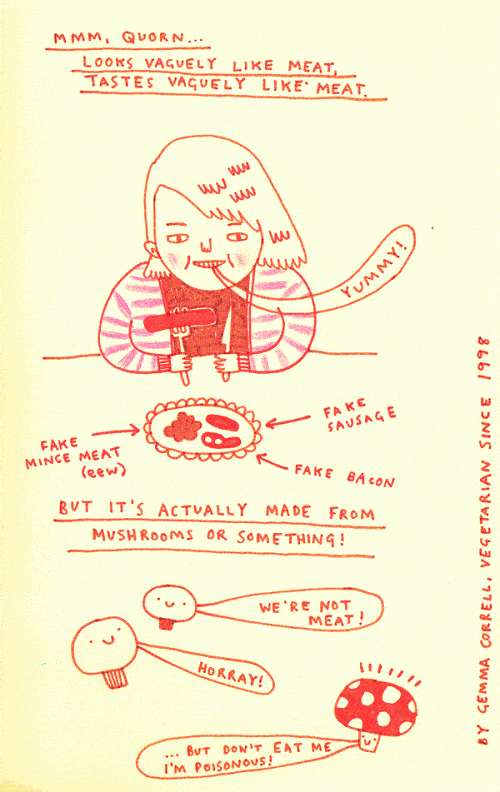 MMM, QUORN...
LOOKS VAGUELY LIKE MEAT,
TASTES VAGUELY LIKE MEAT.
YUMMY!
FAKE
SAUSAGE
FAKE
MINCE MEAT
(eew)
FAKE BACON
BUT IT'S ACTUALLY MADE FROM
MUSHROOMS OR SOMETHING!
WE'RE NOT
MEAT!
HORRAY!
... BUT DON'T EAT ME
I'M POISONOUS!
BY GEMMA CORRELL, VEGETARIAN SINCE 1998